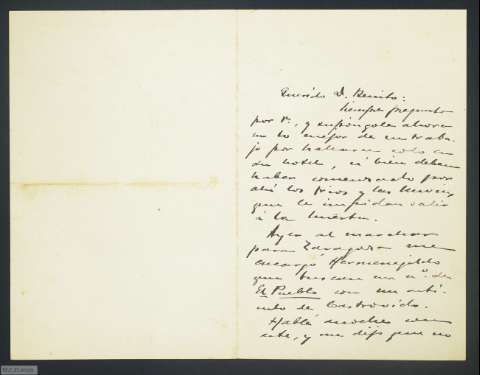 Querido D. Benito:
Siempre pregunto
por V., y supóngole ahora
en lo mejor de su traba-
jo por hallarse solo en
su hotel, si bien deben
haber comenzado por
ahí los fríos y las lluvias
que le impidan salir
a la huerta.
Ayer al marchar
para Zaragoza me
encargó Hermenegildo
que buscara un nº de
El Pueblo con un artí-
culo de Castrovido.
Hablé anoche con
este, y me dijo que no